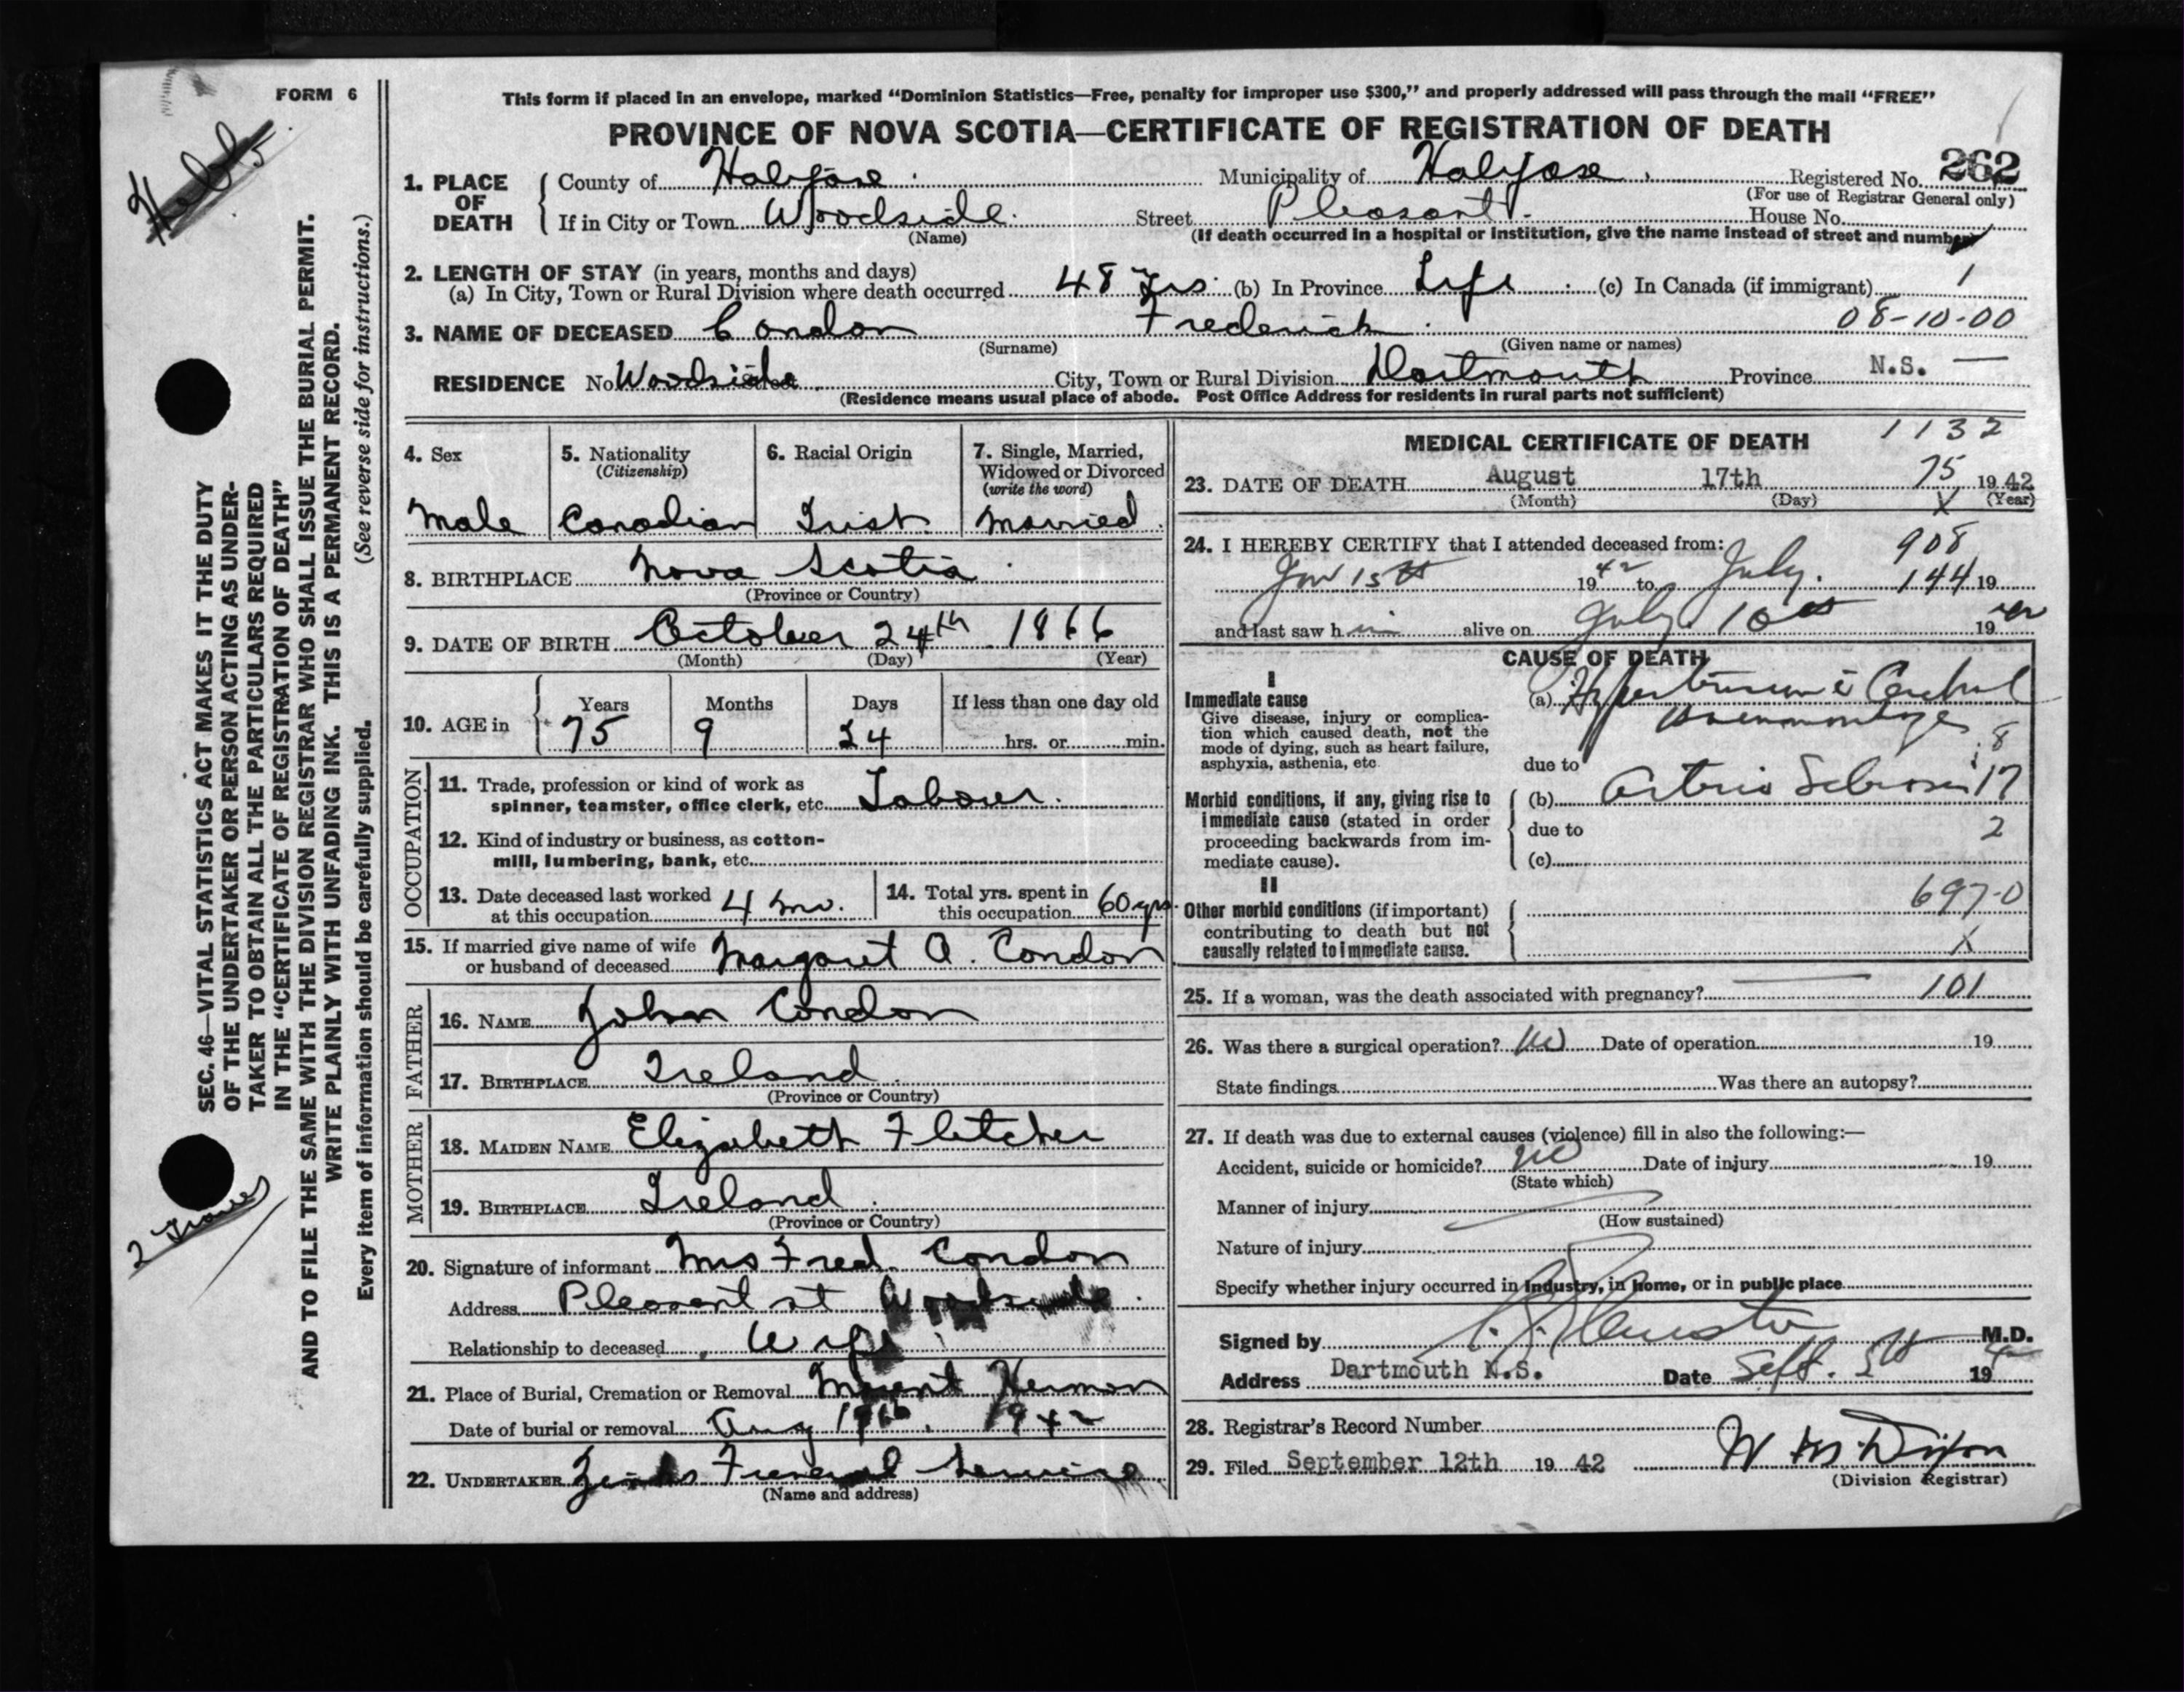 FORM 6
This form if placed in an envelope, marked "Dominion Statistics—Free, penalty for improper use $300," and properly addressed will pass through the mail "FREE"
PROVINCE OF NOVA SCOTIA—CERTIFICATE OF REGISTRATION OF DEATH
262
1. PLACE OF DEATH County of Halifax Municipality of Halifax Registered No.
(For use of Registrar General only)
If in City or Town Woodside Street Pleasant House No.
(Name) (If death occurred in a hospital or institution, give the name instead of street and number)
2. LENGTH OF STAY (in years, months and days)
(a) In City, Town or Rural Division where death occurred 48 Yrs (b) In Province Life (c) In Canada (if immigrant) 1
08-10-00
3. NAME OF DECEASED Condon Frederick
(Surname) (Given name or names)
RESIDENCE No. Woodside City, Town or Rural Division Dartmouth Province N.S. —
(Residence means usual place of abode. Post Office Address for residents in rural parts not sufficient)
4. Sex
Male
5. Nationality
(Citizenship)
Canadian
6. Racial Origin
Irish
7. Single, Married,
Widowed or Divorced
(write the word)
Married
8. BIRTHPLACE Nova Scotia
(Province or Country)
9. DATE OF BIRTH October 24th 1866
(Month) (Day) (Year)
10. AGE in Years Months Days If less than one day old
75 9 24 hrs. or min.
OCCUPATION
11. Trade, profession or kind of work as
spinner, teamster, office clerk, etc. Labour.
12. Kind of industry or business, as cotton-
mill, lumbering, bank, etc.
13. Date deceased last worked
at this occupation 4 mo.
14. Total yrs. spent in
this occupation 60 yrs.
15. If married give name of wife
or husband of deceased Margaret A. Condon
FATHER
16. NAME John Condon
17. BIRTHPLACE Ireland
(Province or Country)
MOTHER
18. MAIDEN NAME Elizabeth Fletcher
19. BIRTHPLACE Ireland
(Province or Country)
20. Signature of informant Mrs Fred. Condon
Address Pleasant st Woodside
Relationship to deceased Wife
21. Place of Burial, Cremation or Removal Mount Hermon
Date of burial or removal Aug 19th, 1942
22. UNDERTAKER Funeral Service
(Name and address)
1132
MEDICAL CERTIFICATE OF DEATH
75
23. DATE OF DEATH August 17th 19 42
(Month) (Day) (Year)
X
24. I HEREBY CERTIFY that I attended deceased from: 908
Jan 15th 19 42 to July. 144 19
and last saw h im alive on July 10th 19 42
CAUSE OF DEATH
I
Immediate cause
Give disease, injury or complica-
tion which caused death, not the
mode of dying, such as heart failure,
asphyxia, asthenia, etc
(a) Hypertension c Cerebral
Haemorrhage
8
due to
Morbid conditions, if any, giving rise to
immediate cause (stated in order
proceeding backwards from im-
mediate cause).
(b) Arterio Sclerosis 17
due to 2
(c)
II
697-0
Other morbid conditions (if important)
contributing to death but not
causally related to immediate cause.
X
25. If a woman, was the death associated with pregnancy? — 101
26. Was there a surgical operation? no Date of operation 19
State findings Was there an autopsy?
27. If death was due to external causes (violence) fill in also the following:—
Accident, suicide or homicide? no Date of injury 19
(State which)
Manner of injury
(How sustained)
Nature of injury
Specify whether injury occurred in Industry, in home, or in public place
Signed by M.D.
Address Dartmouth N.S. Date Sept. 5th 19 42
28. Registrar's Record Number
29. Filed September 12th 19 42 W M Dixon
(Division Registrar)
SEC. 46—VITAL STATISTICS ACT MAKES IT THE DUTY
OF THE UNDERTAKER OR PERSON ACTING AS UNDER-
TAKER TO OBTAIN ALL THE PARTICULARS REQUIRED
IN THE "CERTIFICATE OF REGISTRATION OF DEATH"
AND TO FILE THE SAME WITH THE DIVISION REGISTRAR WHO SHALL ISSUE THE BURIAL PERMIT.
WRITE PLAINLY WITH UNFADING INK. THIS IS A PERMANENT RECORD.
Every item of information should be carefully supplied. (See reverse side for instructions.)